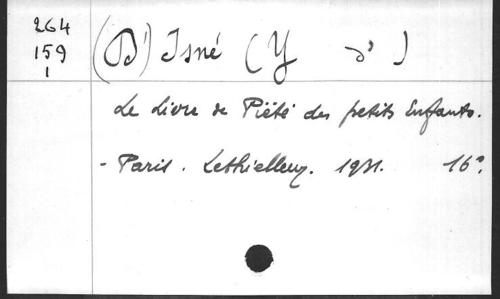 264
159
1
(D') Isné (Y d')
Le Livre de Piété des petits Enfants.
- Paris. Lethielleux. 1931. 16°.